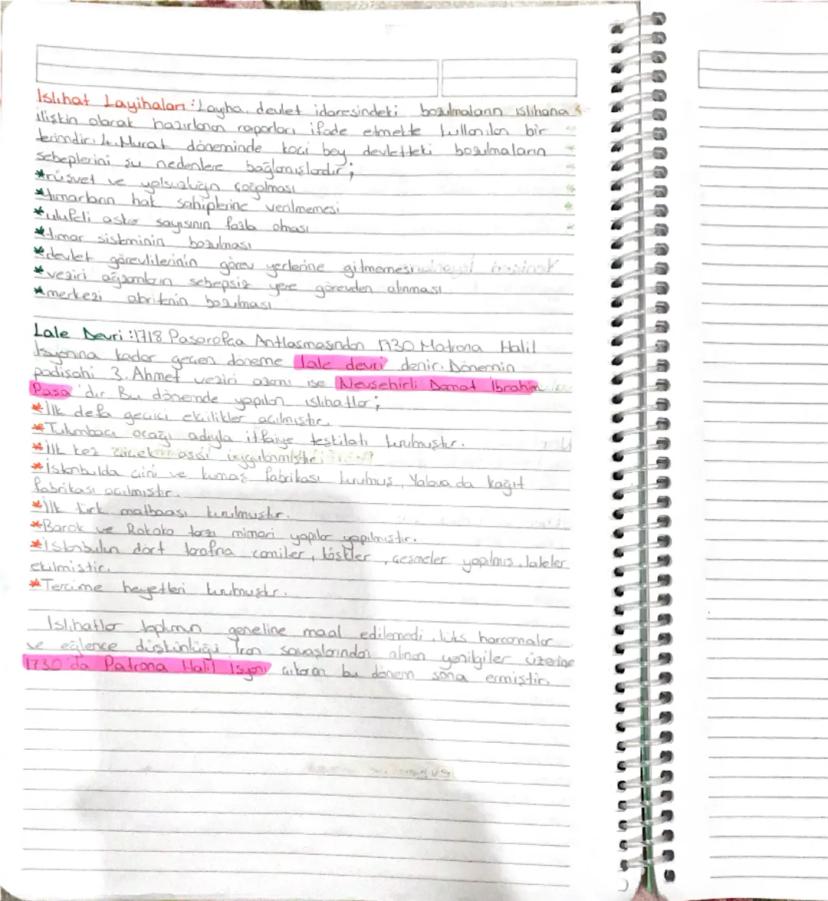 Islihat Layihaları: Layiha, devlet idaresindeki bozulmaların ıslihana
ilişkin olarak hazırlanan raporları ifade etmekte kullanılan bir
terimdir. 4. Murat döneminde koçi bey devletteki bozulmaların
sebeplerini şu nedenlere bağlamışlardır;
*rüşvet ve yolsuzluğun çoğalması
*tımarların hak sahiplerine verilmemesi
*ulufeli asker sayısının fazla olması
*tımar sisteminin bozulması
*devlet görevlilerinin görev yerlerine gitmemesi
*veziri azamların sebepsiz yere görevden alınması
*merkezi otoritenin bozulması
Lale Devri: 1718 Pasarofça Antlaşmasından 1730 Matrona Halil
İsyanına kadar geçen döneme lale devri denir. Dönemin
padişahı 3. Ahmet veziri azamı ise Nevşehirli Damat İbrahim
Paşa'dır. Bu dönemde yapılan ıslihatlar;
*İlk defa geçici elçilikler açılmıştır.
*Tulumbacı ocağı adıyla itfaiye teşkilatı kurulmuştur.
*İlk kez çiçek aşısı uygulanmıştır.
*İstanbulda çini ve kumaş fabrikası kurulmuş, Yalova da kağıt
fabrikası açılmıştır.
*İlk türk matbaası kurulmuştur.
*Barok ve Rokoko tarzı mimari yapılar yapılmıştır.
*İstanbulun dört tarafına camiler, köşkler, çeşmeler yapılmış, laleler
ekilmiştir.
*Tercüme heyetleri kurulmuştur.
Islihatlar toplumun geneline maal edilemedi, lüks harcamalar
ve eğlence düşkünlüğü İran savaşlarından alınan yenilgiler üzerine
1730'da Patrona Halil İsyanı çıkaran bu dönem sona ermiştir.